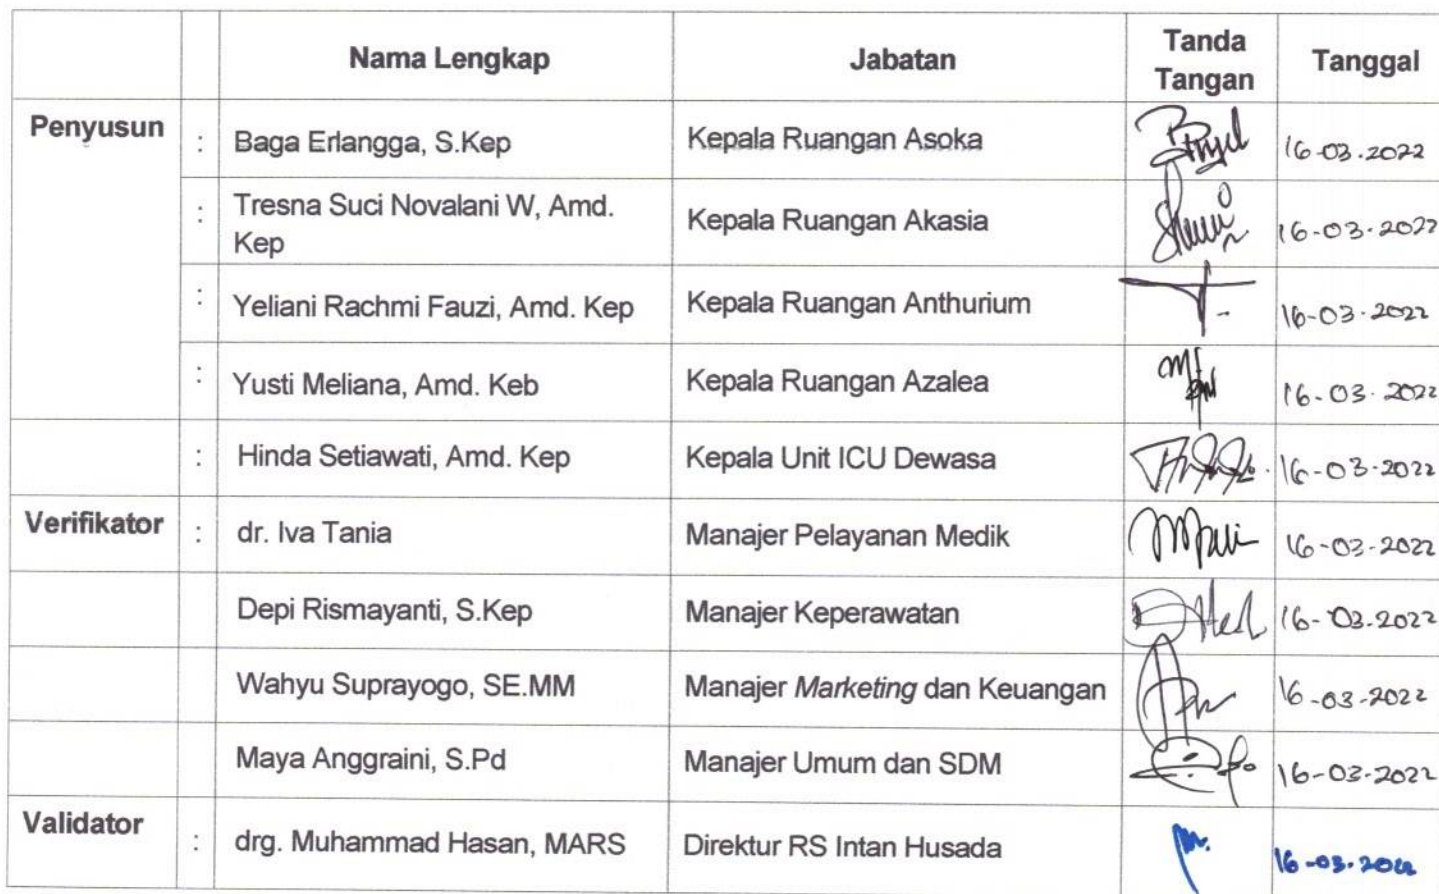 Nama Lengkap Jabatan Tanda Tangan Tanggal
Penyusun : Baga Erlangga, S.Kep Kepala Ruangan Asoka 16-03-2022
: Tresna Suci Novalani W, Amd. Kep Kepala Ruangan Akasia 16-03-2022
: Yeliani Rachmi Fauzi, Amd. Kep Kepala Ruangan Anthurium 16-03-2022
: Yusti Meliana, Amd. Keb Kepala Ruangan Azalea 16-03-2022
: Hinda Setiawati, Amd. Kep Kepala Unit ICU Dewasa 16-03-2022
Verifikator : dr. Iva Tania Manajer Pelayanan Medik 16-03-2022
Depi Rismayanti, S.Kep Manajer Keperawatan 16-03-2022
Wahyu Suprayogo, SE.MM Manajer Marketing dan Keuangan 16-03-2022
Maya Anggraini, S.Pd Manajer Umum dan SDM 16-03-2022
Validator : drg. Muhammad Hasan, MARS Direktur RS Intan Husada 16-03-2022